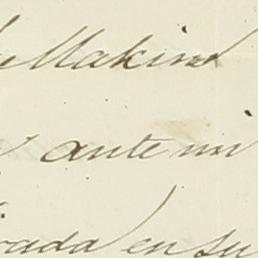 Makins
ante mi
rada en su